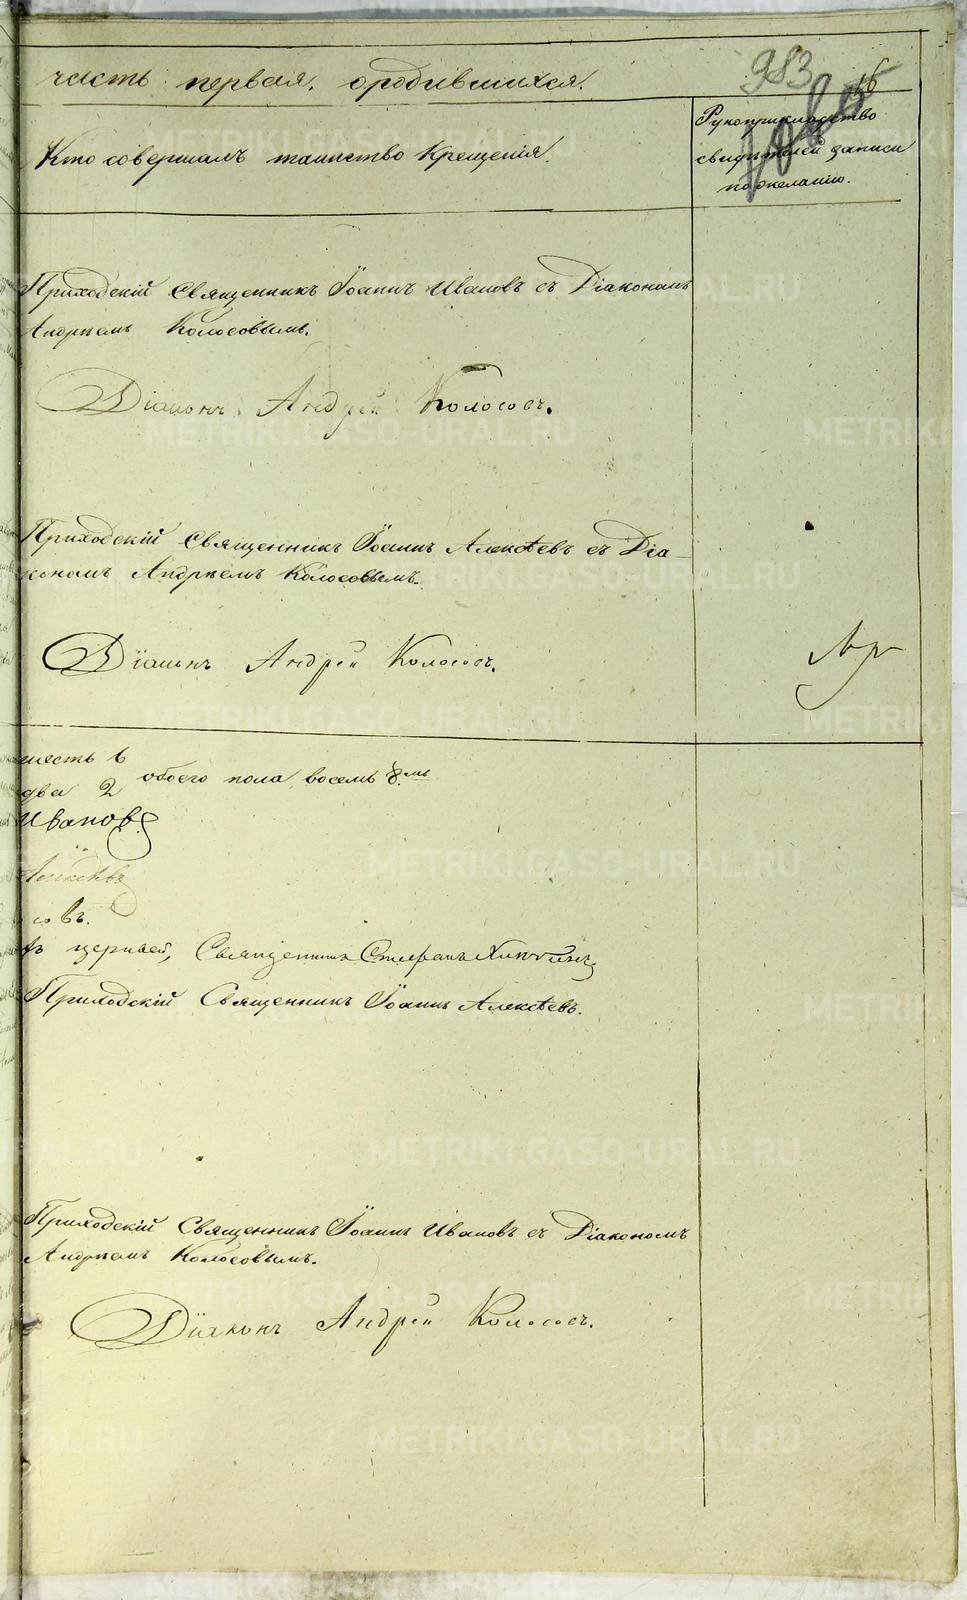 часть первая, ородившихся.
983
16
Кто совершалъ таинство крещенія.
Рукоприкладство
свидѣтелей записи
по желанію.
Приходскій Священникъ Іоаннъ Ивановъ съ Діакономъ
Андреемъ Колосовымъ.
Діаконъ Андрей Колосовъ.
Приходскій Священникъ Іоаннъ Алексѣевъ съ Діа-
кономъ Андреемъ Колосовымъ.
Діаконъ Андрей Колосовъ.
шесть 6
два 2 обоего пола восемь 8.мь
Ивановъ
Алексѣевъ
совъ.
церквей, Священникъ Стефанъ
Приходскій Священникъ Іоаннъ Алексѣевъ.
Приходскій Священникъ Іоаннъ Ивановъ съ Діакономъ
Андреемъ Колосовымъ.
Діаконъ Андрей Колосовъ.
METRIKI.GASO-URAL.RU